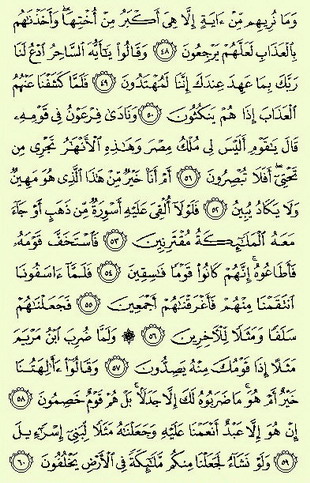 وَمَا نُرِيهِم مِّنْ ءَايَةٍ إِلَّا هِيَ أَكْبَرُ مِنْ أُخْتِهَا ۖ وَأَخَذْنَٰهُم
بِٱلْعَذَابِ لَعَلَّهُمْ يَرْجِعُونَ ٤٨ وَقَالُوا۟ يَٰٓأَيُّهَ ٱلسَّاحِرُ ٱدْعُ لَنَا
رَبَّكَ بِمَا عَهِدَ عِندَكَ إِنَّنَا لَمُهْتَدُونَ ٤٩ فَلَمَّا كَشَفْنَا عَنْهُمُ
ٱلْعَذَابَ إِذَا هُمْ يَنكُثُونَ ٥٠ وَنَادَىٰ فِرْعَوْنُ فِى قَوْمِهِۦ
قَالَ يَٰقَوْمِ أَلَيْسَ لِى مُلْكُ مِصْرَ وَهَٰذِهِ ٱلْأَنْهَٰرُ تَجْرِى مِن
تَحْتِىٓ ۖ أَفَلَا تُبْصِرُونَ ٥١ أَمْ أَنَا۠ خَيْرٌ مِّنْ هَٰذَا ٱلَّذِى هُوَ مَهِينٌ
وَلَا يَكَادُ يُبِينُ ٥٢ فَلَوْلَآ أُلْقِىَ عَلَيْهِ أَسْوِرَةٌ مِّن ذَهَبٍ أَوْ جَآءَ
مَعَهُ ٱلْمَلَٰٓئِكَةُ مُقْتَرِنِينَ ٥٣ فَٱسْتَخَفَّ قَوْمَهُۥ
فَأَطَاعُوهُ ۚ إِنَّهُمْ كَانُوا۟ قَوْمًا فَٰسِقِينَ ٥٤ فَلَمَّآ ءَاسَفُونَا
ٱنتَقَمْنَا مِنْهُمْ فَأَغْرَقْنَٰهُمْ أَجْمَعِينَ ٥٥ فَجَعَلْنَٰهُمْ
سَلَفًا وَمَثَلًا لِّلْءَاخِرِينَ ٥٦ ۞ وَلَمَّا ضُرِبَ ٱبْنُ مَرْيَمَ
مَثَلًا إِذَا قَوْمُكَ مِنْهُ يَصِدُّونَ ٥٧ وَقَالُوٓا۟ ءَأَٰلِهَتُنَا
خَيْرٌ أَمْ هُوَ ۚ مَا ضَرَبُوهُ لَكَ إِلَّا جَدَلًۢا ۚ بَلْ هُمْ قَوْمٌ خَصِمُونَ ٥٨
إِنْ هُوَ إِلَّا عَبْدٌ أَنْعَمْنَا عَلَيْهِ وَجَعَلْنَٰهُ مَثَلًا لِّبَنِىٓ إِسْرَٰٓءِيلَ
٥٩ وَلَوْ نَشَآءُ لَجَعَلْنَا مِنكُم مَّلَٰٓئِكَةً فِى ٱلْأَرْضِ يَخْلُفُونَ ٦٠